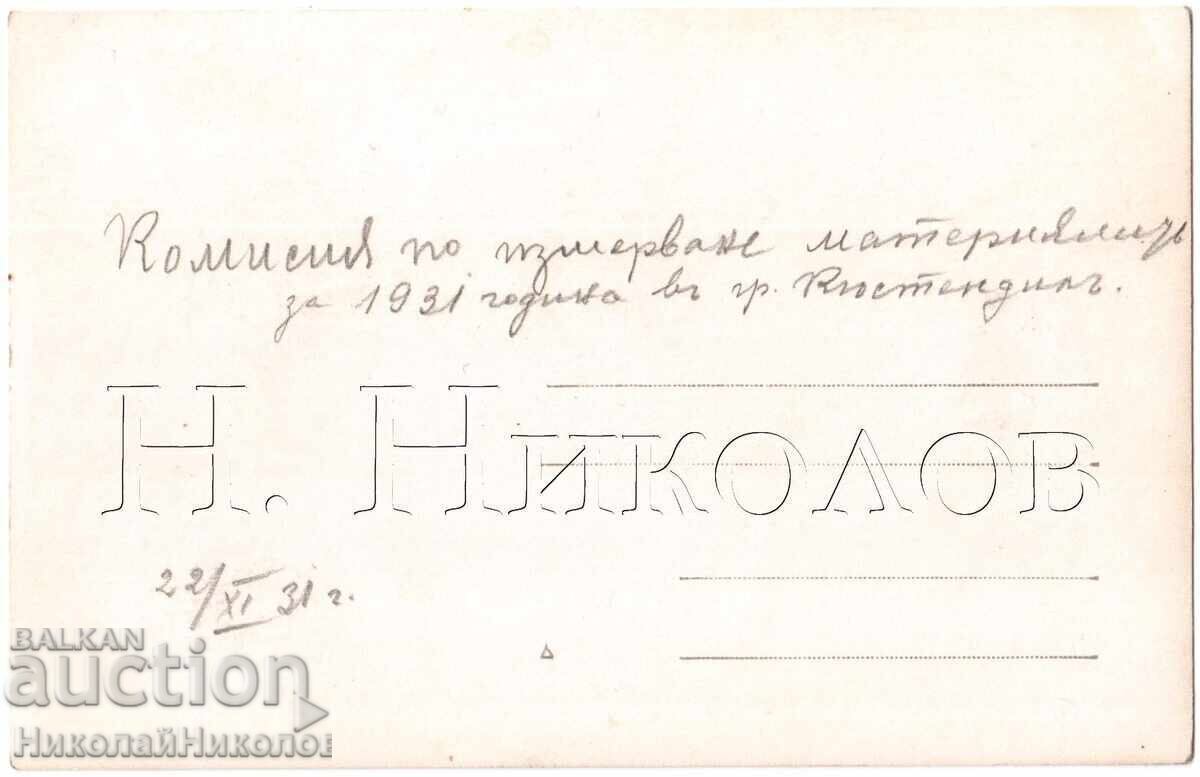 Комисия по измерване материялитѣ
за 1931 година въ гр. Кюстендилъ.
Н. Николов
22/XI 31 г.
BALKAN
auction
НиколайНиколов